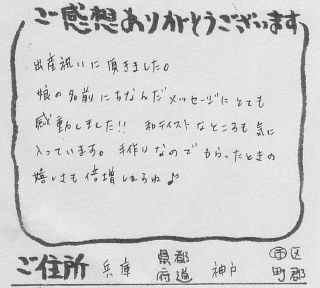 ご感想ありがとうございます
出産祝いに頂きました。
娘の名前にちなんだメッセージにとても
感動しました!! 和テイストなところも気に
入っています。手作りなのでもらったときの
嬉しさも倍増しますね♪
ご住所 兵庫 県都府道 神戸 市区町郡